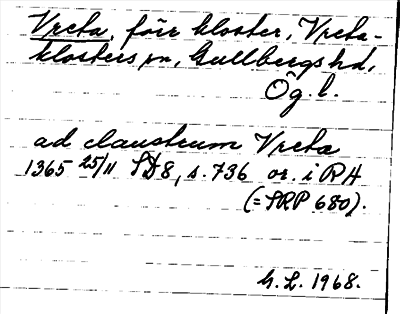 Vreta, förr kloster, Vreta-
klosters sn, Gullbergs hd,
Ög. l.
ad claustrum Vreta
1365 25/11 SD 8, s. 736 or. i RA
(= SRP 680).
G. L. 1968.